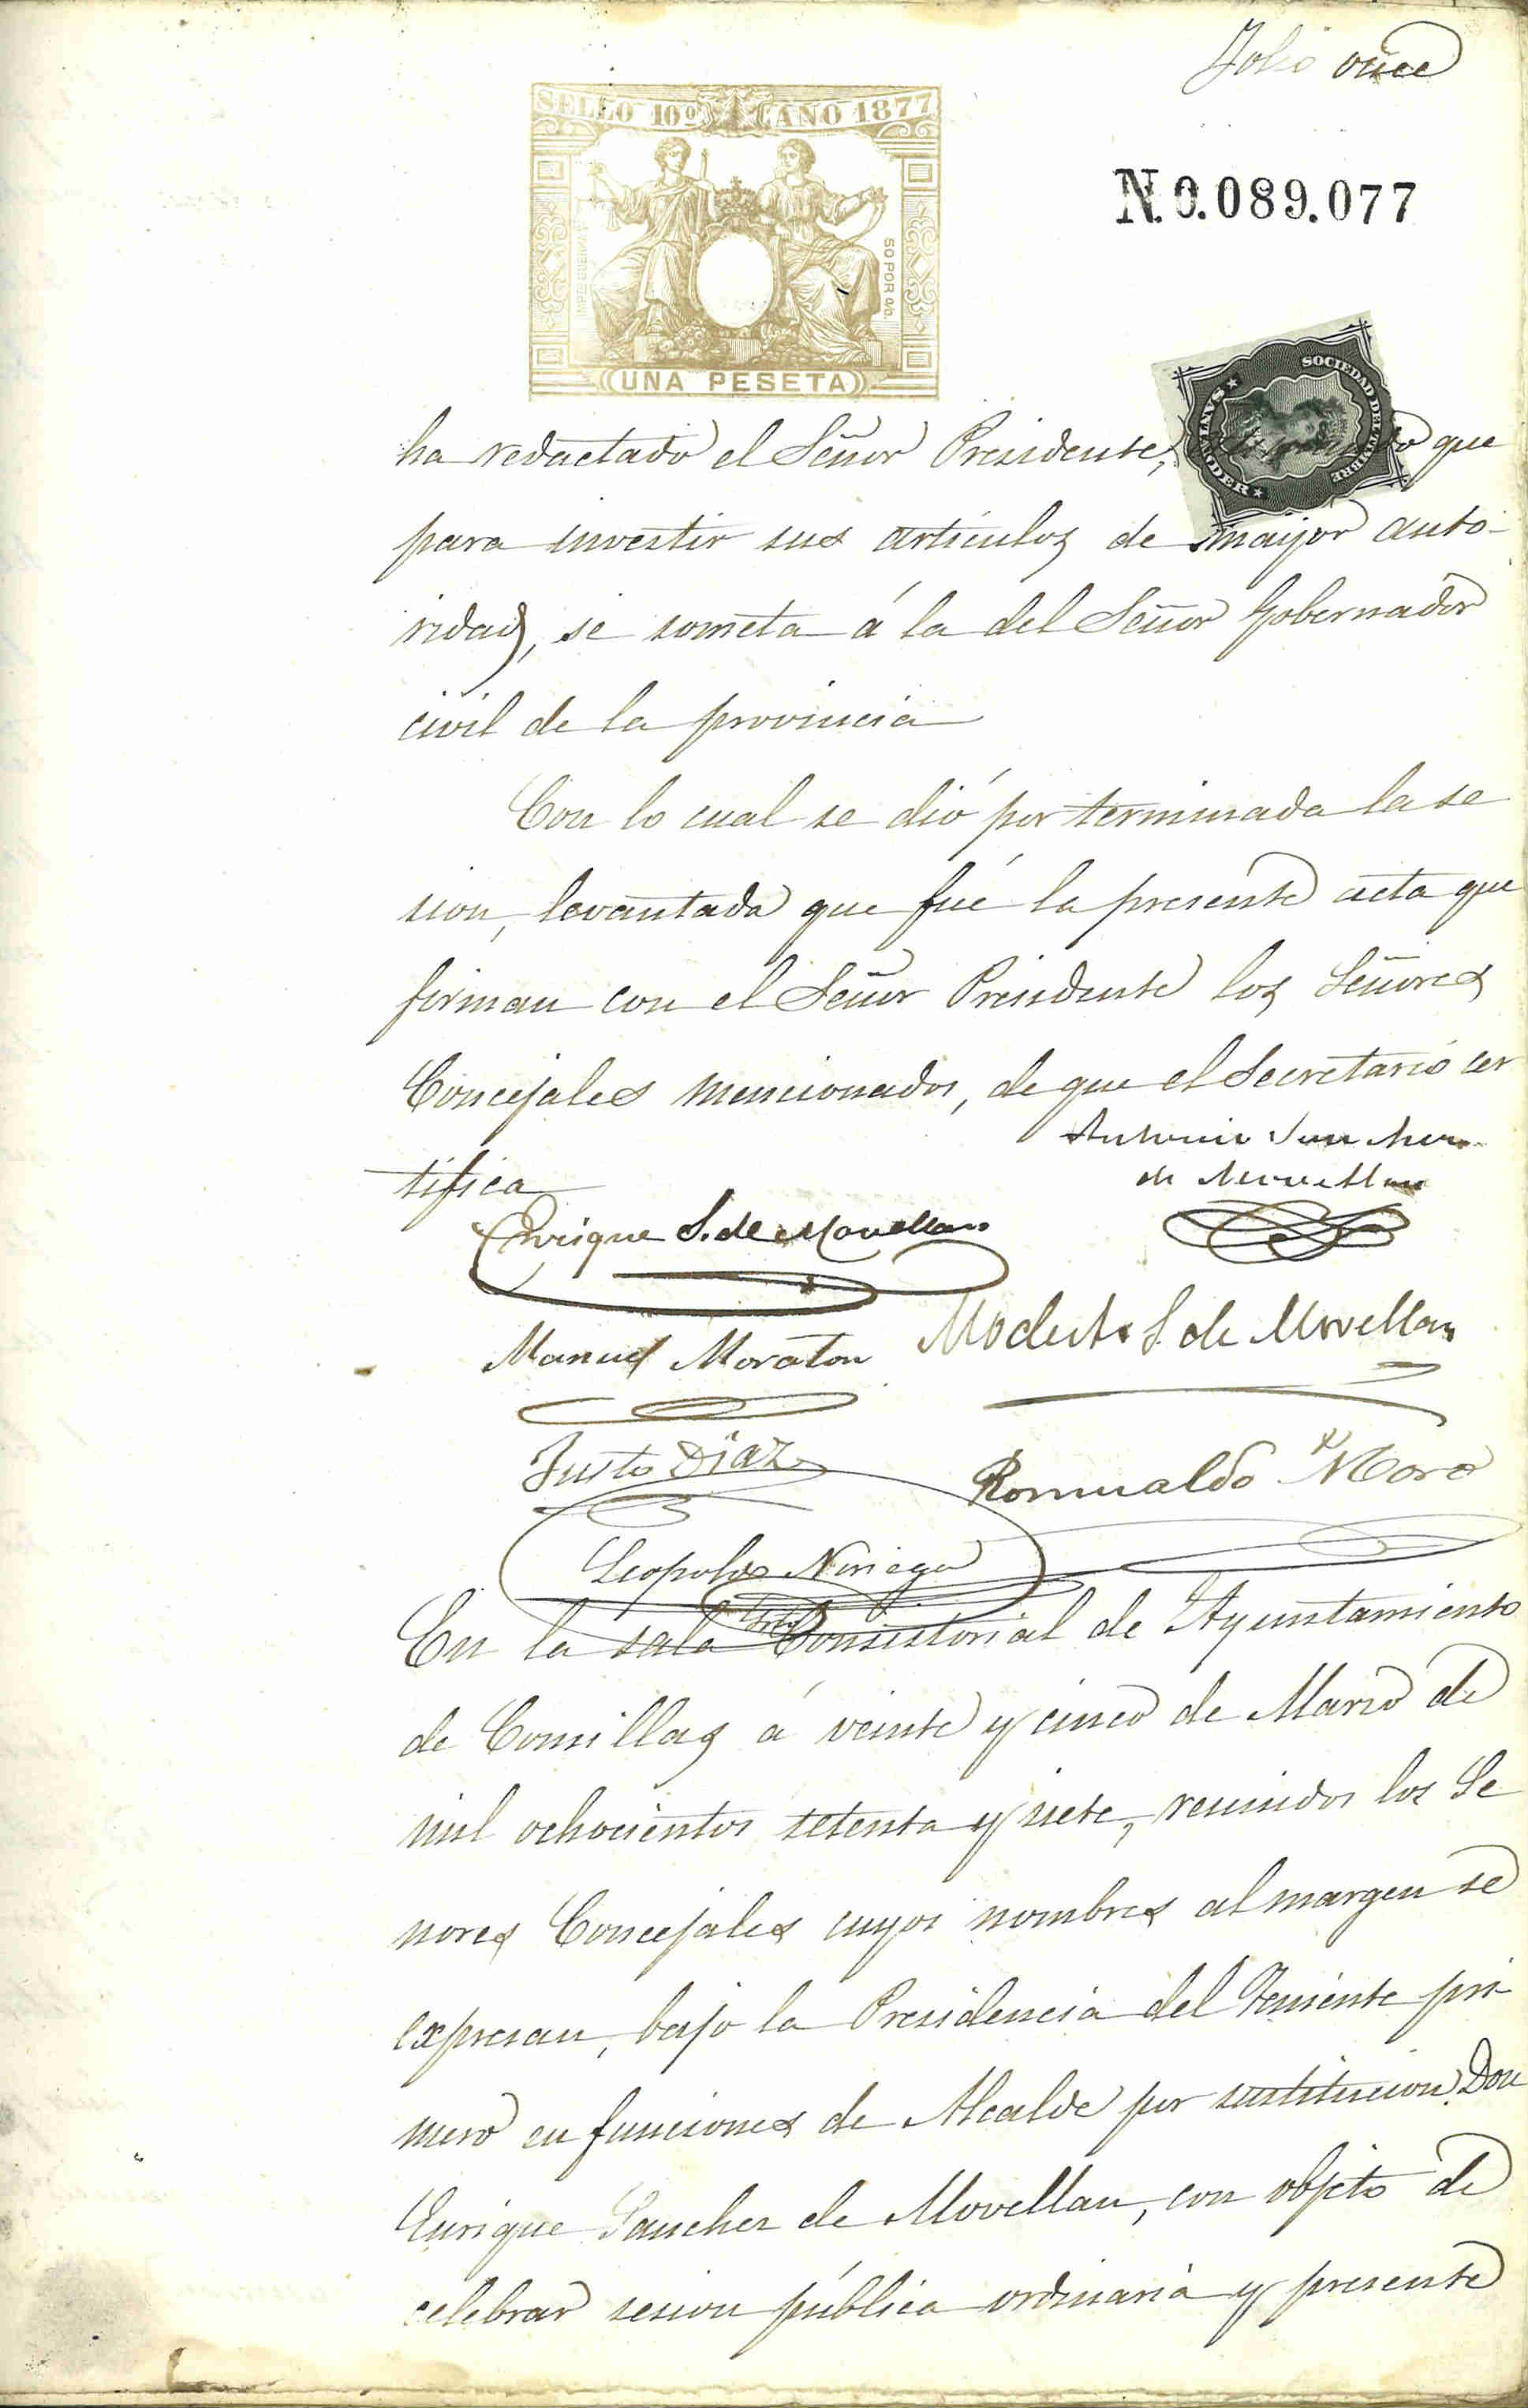 Folio once
SELLO 10º AÑO 1877
N.0.089.077
50 POR 0/0.
UNA PESETA
SOCIEDAD DEL TIMBRE
★ SANTANDER ★
ha redactado el Señor Presidente, que
para investir sus artículos de mayor auto-
ridad, se someta á la del Señor Gobernador
civil de la provincia
Con lo cual se dió por terminada la se
sion, levantada que fué la presente acta que
firman con el Señor Presidente los Señores
Concejales mencionados, de que el Secretario cer
tifica
Antonio San
de Movellan
Enrique S. de Movellan
Manuel Moraton
Modesto S. de Movellan
Justo Diaz
Romualdo Moro
Leopoldo Noriega
Srio
En la sala Consistorial de Ayuntamiento
de Comillas á veinte y cinco de Marzo de
mil ochocientos setenta y siete, reunidos los Se
nores Concejales cuyos nombres al margen se
expresan, bajo la Presidencia del Teniente pri-
mero en funciones de Alcalde por sustitucion Don
Enrique Sanchez de Movellan, con objeto de
celebrar sesion pública ordinaria y presente